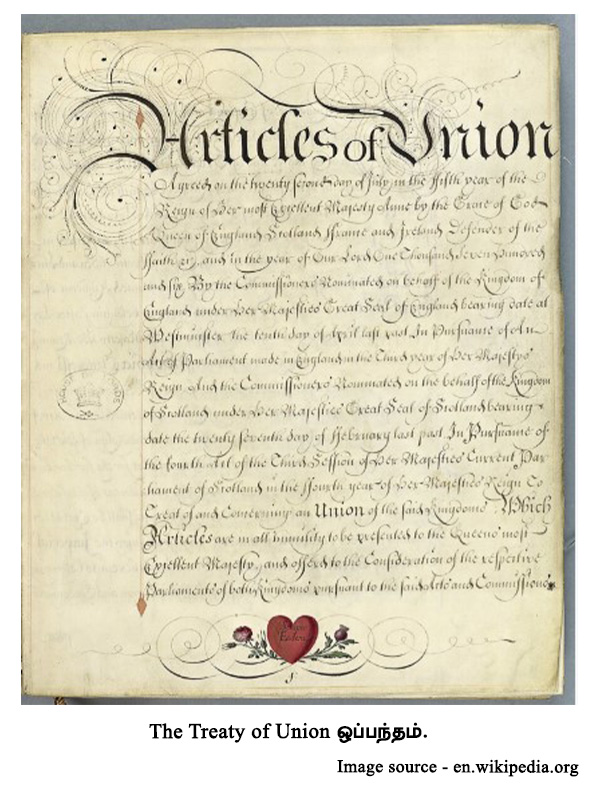 Articles of Union
Agreed on the twenty second day of July, in the ffifth year of the
Reign of Her most Excellent Majesty Anne by the Grace of God
Queen of England Scotland ffrance and Ireland Defender of the
ffaith &c. and in the year of Our Lord One Thousand Seven Hundred
and six By the Commissioners Nominated on behalf of the Kingdom of
England under Her Majesties Great Seal of England bearing date at
Westminster the tenth day of April last past In Pursuance of An
Act of Parliament made in England in the Third year of Her Majestys
Reign And the Commissioners Nominated on the behalf of the Kingdom
of Scotland under Her Majesties Great Seal of Scotland bearing
date the twenty seventh day of ffebruary last past In Pursuance of
the fourth Act of the Third Session of Her Majesties Current Par
liament of Scotland in the ffourth year of Her Majesties Reign To
Treat of and Concerning an Union of the said Kingdoms Which
Articles are in all humility to be presented to the Queens most
Excellent Majesty, and offered to the Consideration of the respective
Parliaments of both Kingdoms pursuant to the said Acts and Commissions
The Treaty of Union ஒப்பந்தம்.
Image source - en.wikipedia.org